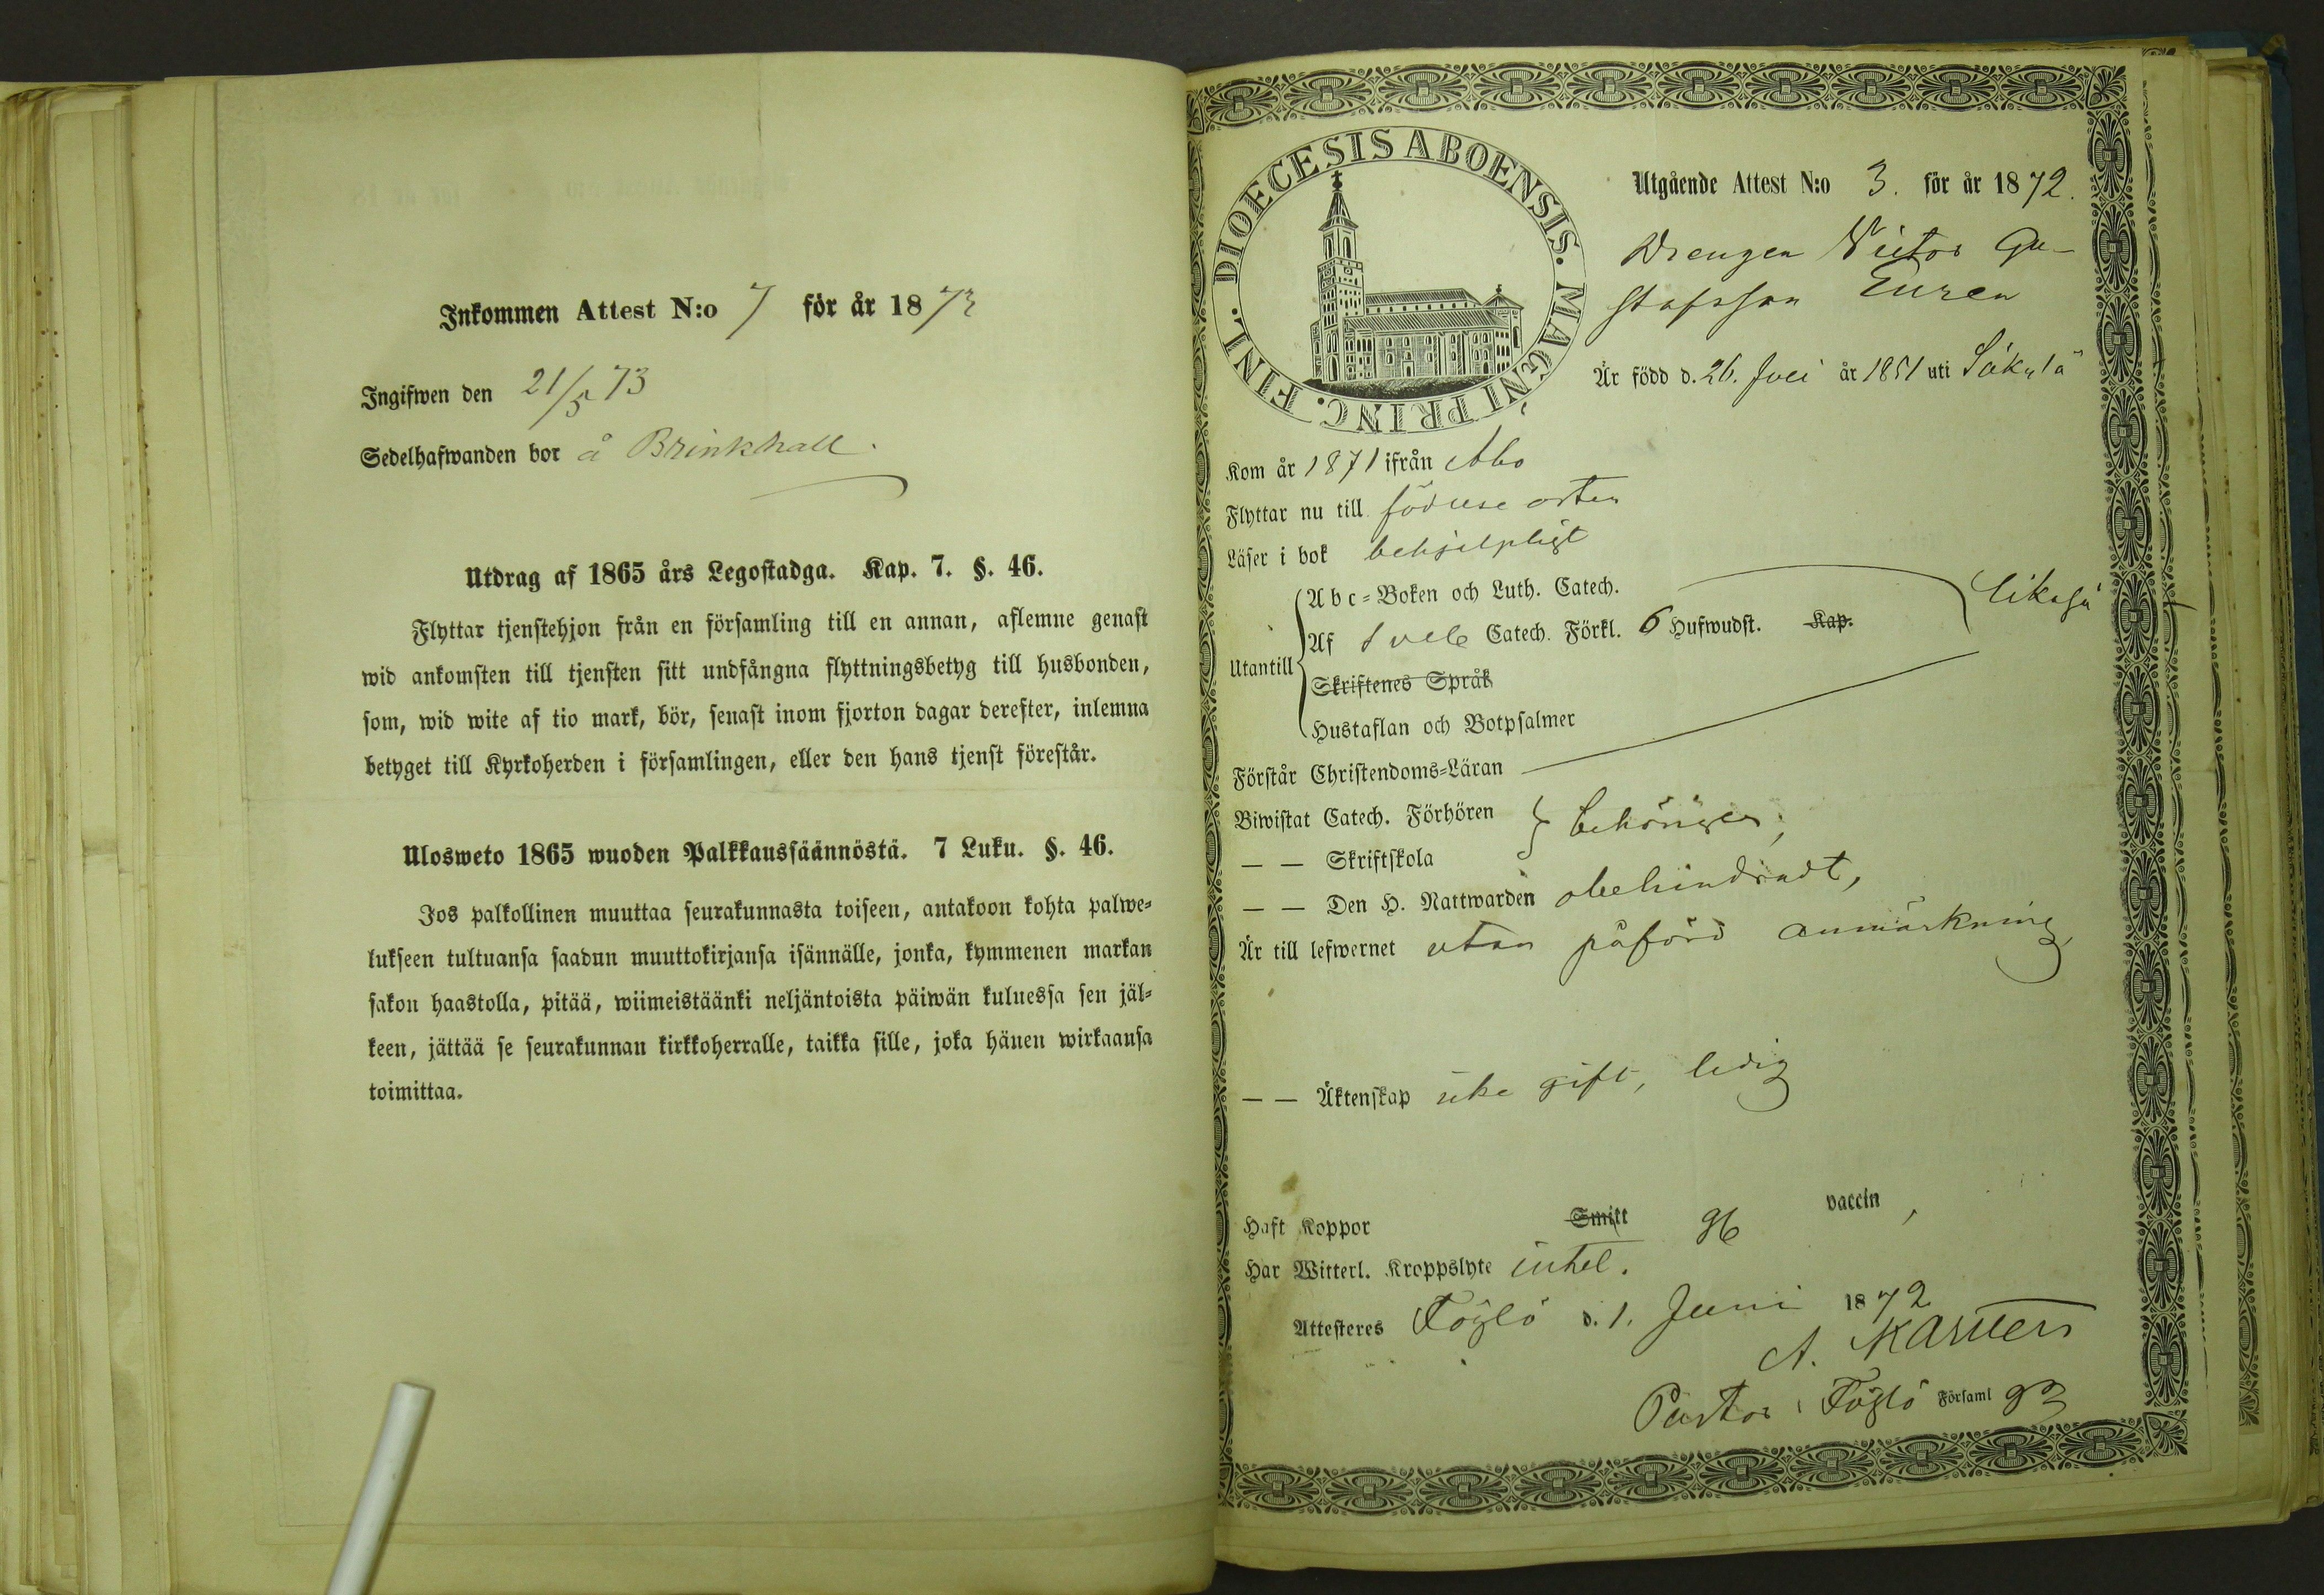 Inkommen Attest N:o 7 för år 1873
Ingifwen den 21/5 73
Sedelhafwanden bor å Brinkhall.
Utdrag af 1865 års Legostadga. Kap. 7. §. 46.
Flyttar tjenstehjon från en församling till en annan, aflemne genast
wid ankomsten till tjensten sitt undfångna flyttningsbetyg till husbonden,
som, wid wite af tio mark, bör, senast inom fjorton dagar derefter, inlemna
betyget till Kyrkoherden i församlingen, eller den hans tjenst förestår.
Ulosweto 1865 wuoden Palkkaussäännöstä. 7 Luku. §. 46.
Jos palkollinen muuttaa seurakunnasta toiseen, antakoon kohta palwe=
lukseen tultuansa saadun muuttokirjansa isännälle, jonka, kymmenen markan
sakon haastolla, pitää, wiimeistäänki neljäntoista päiwän kuluessa sen jäl=
keen, jättää se seurakunnan kirkkoherralle, taikka sille, joka hänen wirkaansa
toimittaa.
DIOECESIS ABOENSIS. MAGNI PRINC. FINL.
Utgående Attest N:o 3. för år 1872.
Drengen Victor Gu-
stafsson Euren
Är född d. 26. Juli år 1851 uti Säkylä
Kom år 1871 ifrån Abo
Flyttar nu till födelse orten
Läser i bok behjelpligt
Utantill
Abc=Boken och Luth. Catech.
Af Sveb Catech. Förkl. 6 Hufwudst. Kap.
likaså
Skriftenes Språk
Hustaflan och Botpsalmer
Förstår Christendoms=Läran
Biwistat Catech. Förhören
behörigen,
— — Skriftskola
— — Den H. Nattwarden obehindradt,
Är till lefwernet utan påförd anmärkning,
— — Äktenskap icke gift, ledig
Haft Koppor Smitt vaccin,
Har Witterl. Kroppslyte intet.
Attesteres Föglö d. 1. Juni 1872
A. Karsten
Pastor i Föglö Församl